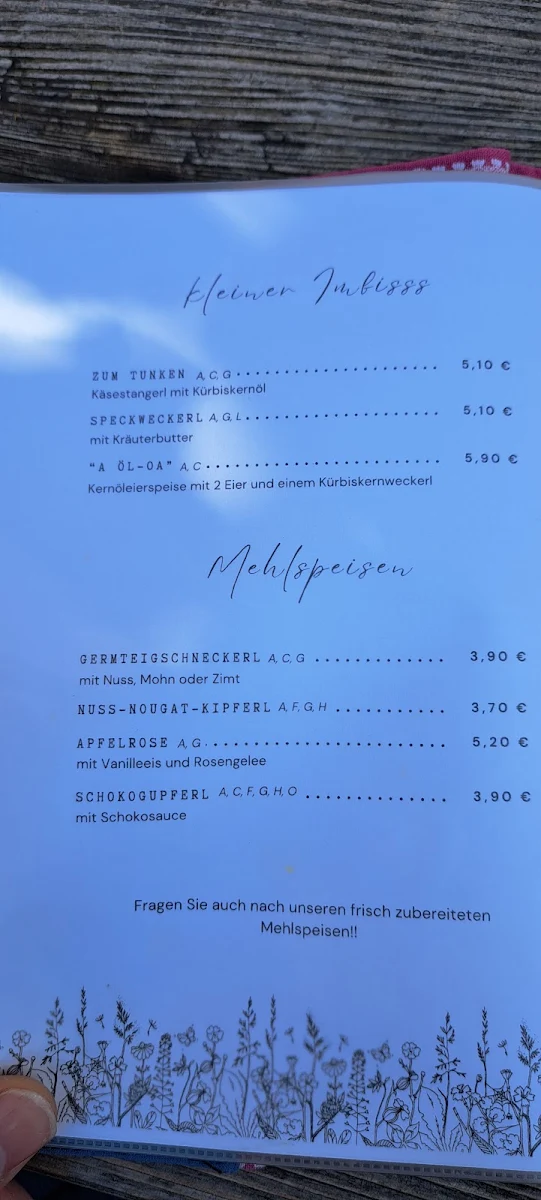 kleiner Imbisss
ZUM TUNKEN A, C, G ...................... 5,10 €
Käsestangerl mit Kürbiskernöl
SPECKWECKERL A, G, L ..................... 5,10 €
mit Kräuterbutter
"A ÖL-OA" A, C .......................... 5,90 €
Kernöleierspeise mit 2 Eier und einem Kürbiskernweckerl
Mehlspeisen
GERMTEIGSCHNECKERL A, C, G ............. 3,90 €
mit Nuss, Mohn oder Zimt
NUSS-NOUGAT-KIPFERL A, F, G, H ........... 3,70 €
APFELROSE A, G ........................ 5,20 €
mit Vanilleeis und Rosengelee
SCHOKOGUPFERL A, C, F, G, H, O .............. 3,90 €
mit Schokosauce
Fragen Sie auch nach unseren frisch zubereiteten
Mehlspeisen!!